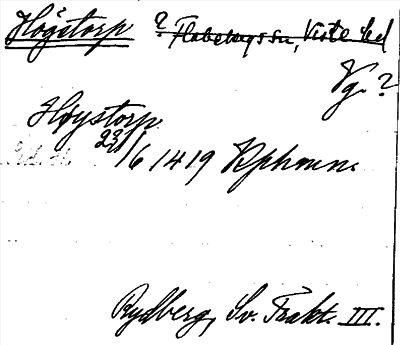 Högstorp ? Flobybygssn, Viste hd
Vg. ?
Høystorp
23/6 1419 Kphavn.
Rydberg, Sv. Trakt. III.